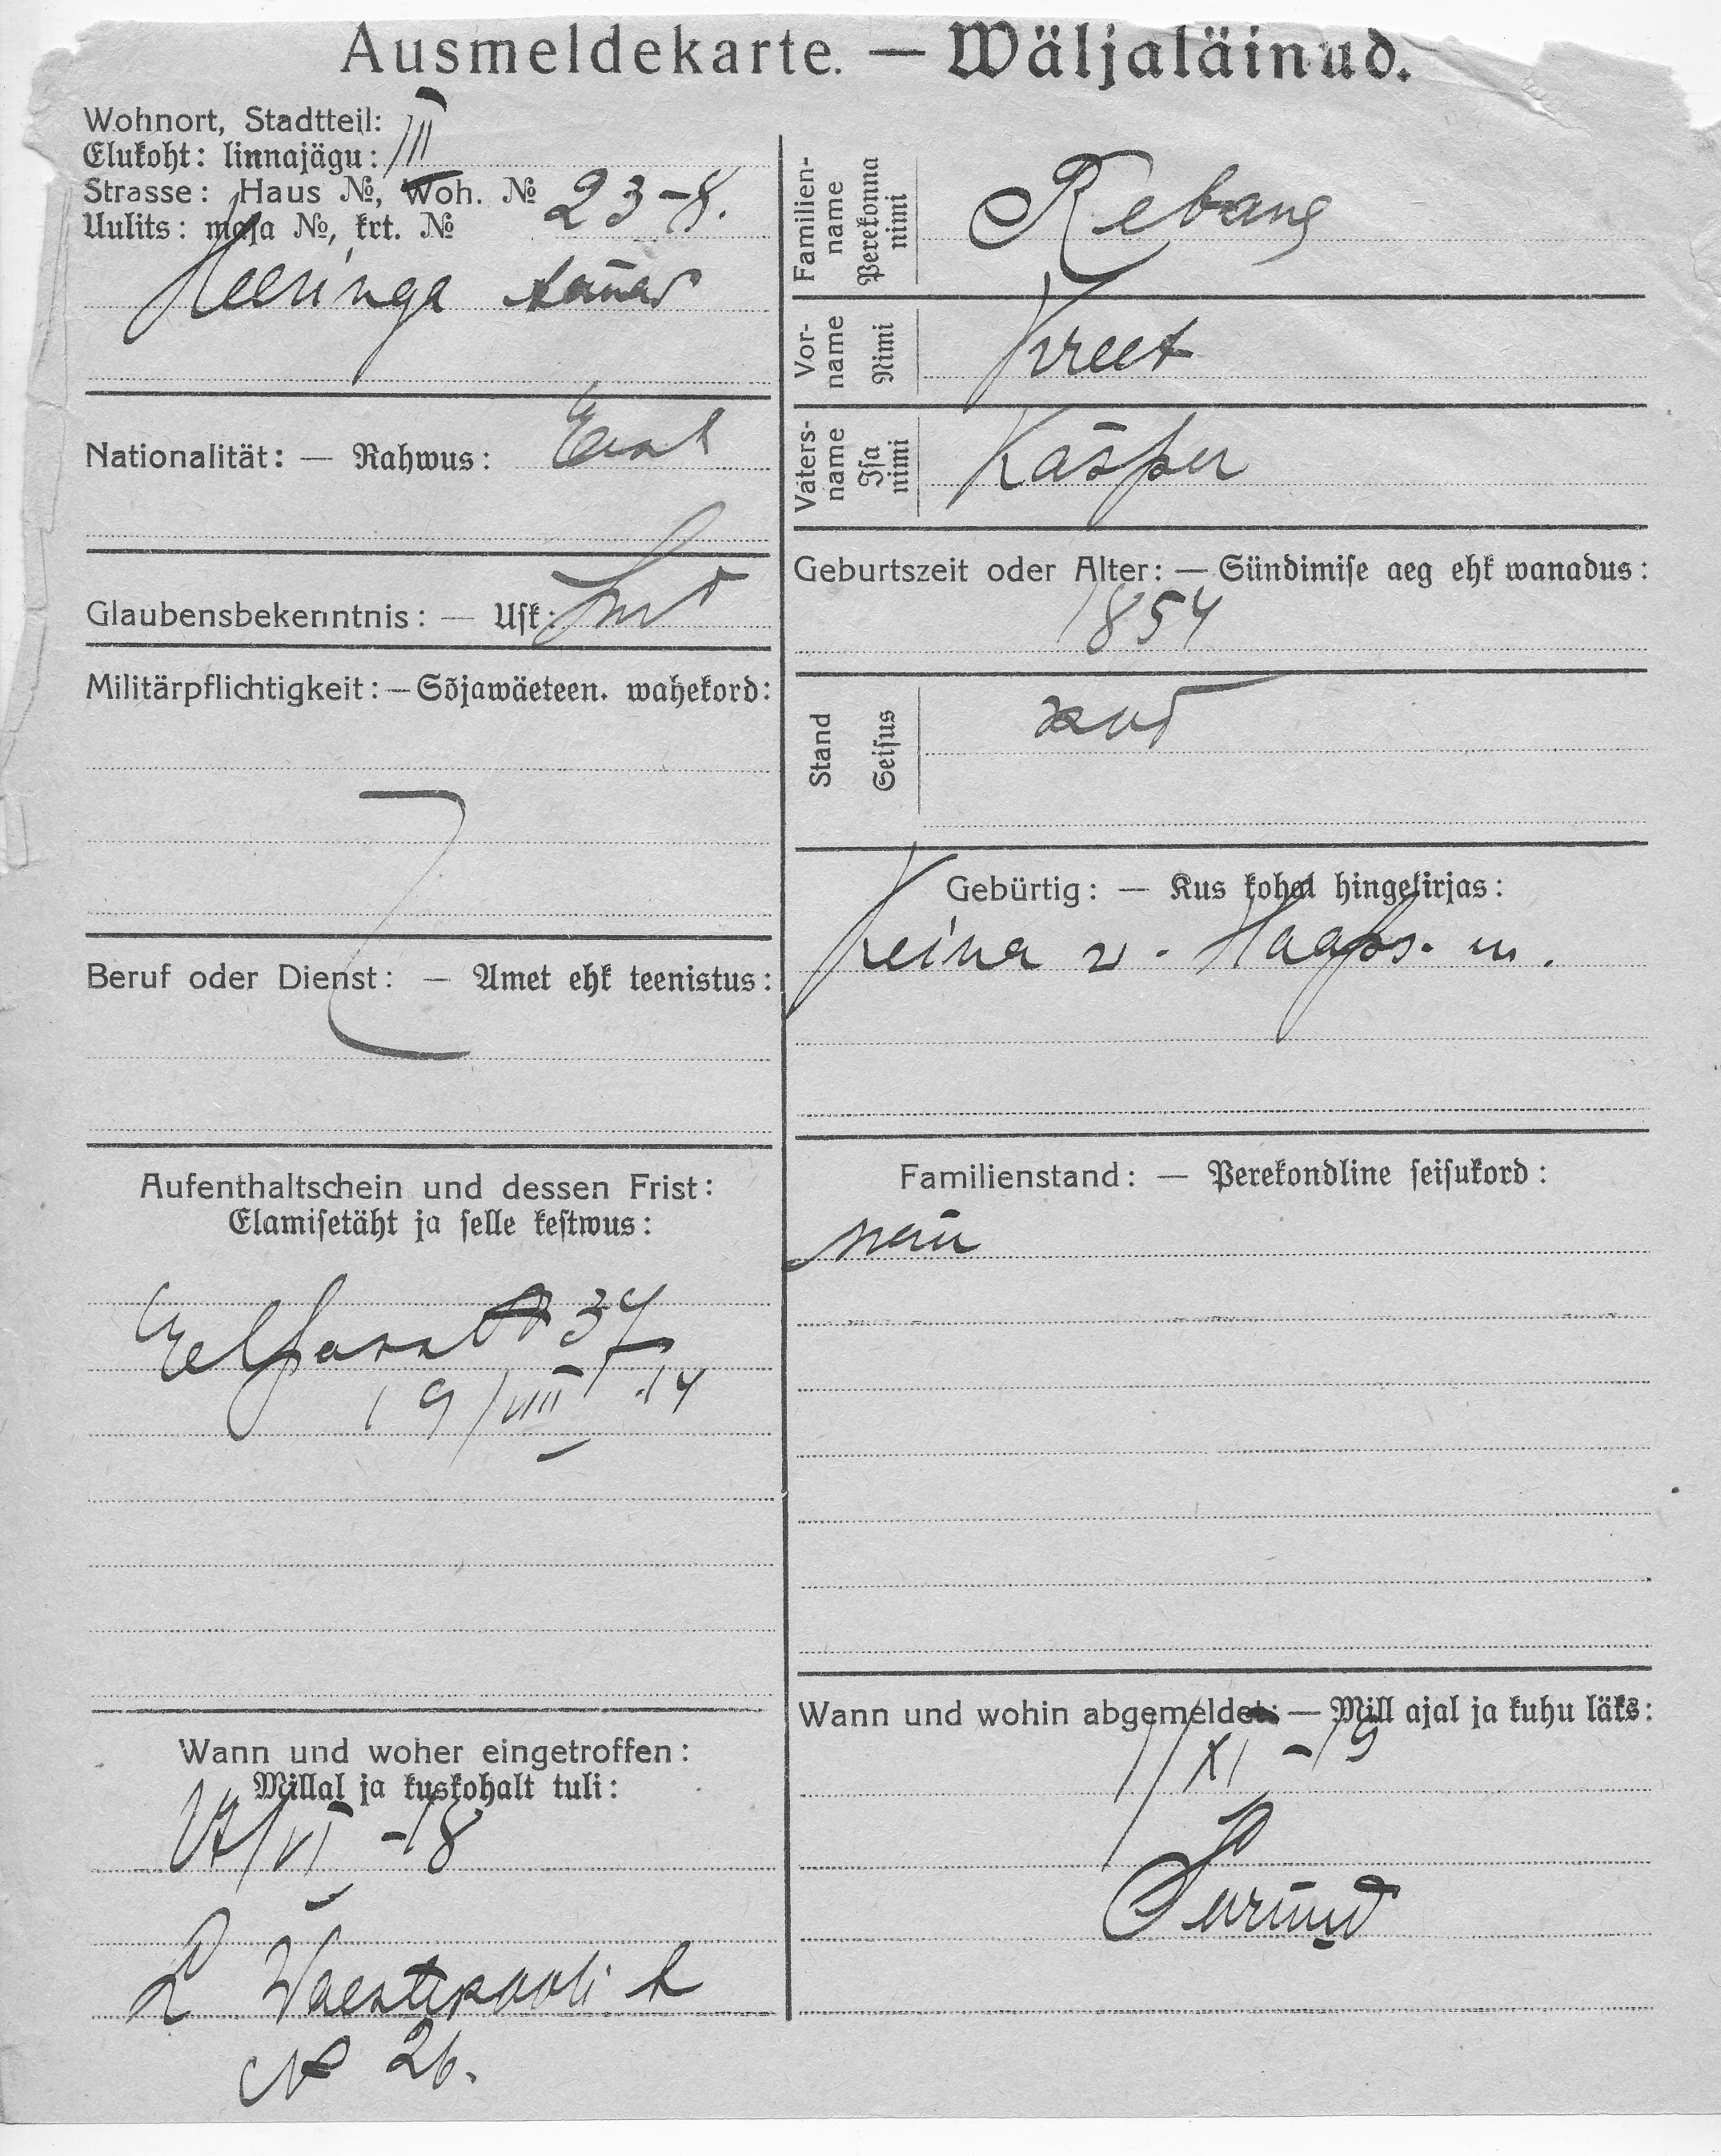 Ausmeldekarte. — Wäljaläinud.
Wohnort, Stadtteil:
Elukoht: linnajägu: III
Strasse: Haus №, Woh. №
Uulits: maja №, krt. № 23-8.
Heeringa tänav
Nationalität: — Rahwus: Eest
Glaubensbekenntnis: — Usk: Lut
Militärpflichtigkeit: — Sõjawäeteen. wahekord:
Beruf oder Dienst: — Amet ehk teenistus:
Aufenthaltschein und dessen Frist:
Elamisetäht ja selle kestwus:
34
19/VIII 14
Wann und woher eingetroffen:
Millal ja kuskohalt tuli:
/VI -18
Waestekooli t
№ 26.
Familien-
name
Perekonna
nimi
Rebane
Vor-
name
Nimi
Kreet
Vaters-
name
Isa
nimi
Kaspar
Geburtszeit oder Alter: — Sündimise aeg ehk wanadus:
1854
Stand
Seisus
Gebürtig: — Kus kohal hingekirjas:
Keina v. Haaps. m.
Familienstand: — Perekondline seisukord:
Wann und wohin abgemeldet: — Mill ajal ja kuhu läks:
1/XI -19
Surnud